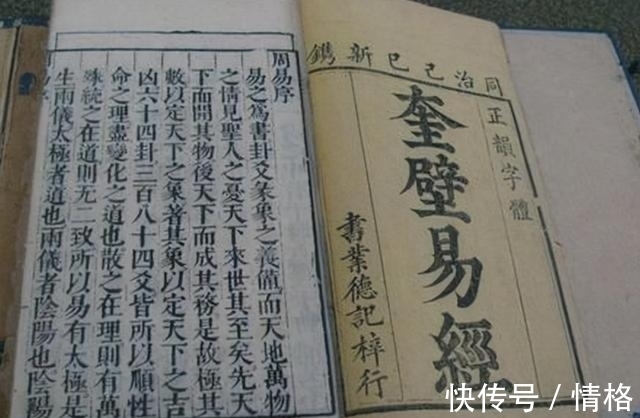 同治己巳新鐫
正韻字體
奎壁易經
書業德記梓行
周易序
易之爲書卦爻彖象之義備而天地萬物
之情見聖人之憂天下來世其至矣先天
下而開其物後天下而成其務是故極其
數以定天下之象著其象以定天下之吉
凶六十四卦三百八十四爻皆所以順性
命之理盡變化之道也散之在理則有萬
殊統之在道則无二致所以易有太極是
生兩儀太極者道也兩儀者陰陽也陰陽
快传号 / 情格